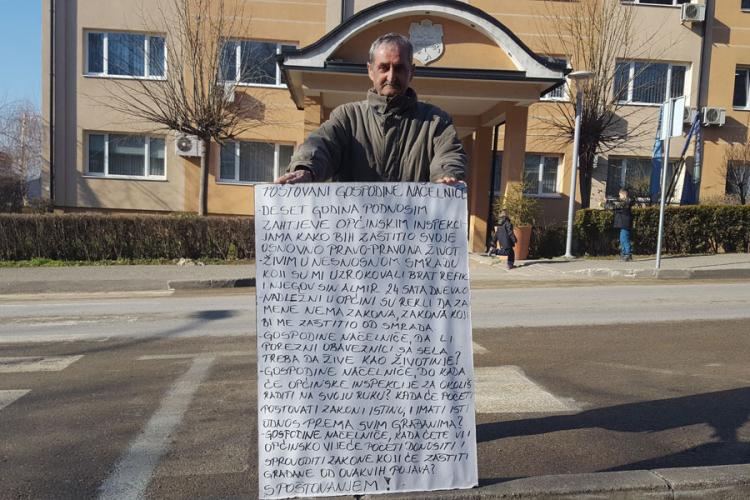 POŠTOVANI GOSPODINE NAČELNIČE
DESET GODINA PODNOSIM
ZAHTJEVE OPĆINSKIM INSPEKCI
JAMA KAKO BIH ZAŠTITIO SVOJE
OSNOVNO PRAVO-PRAVO NA ŽIVOT
-ŽIVIM U NESNOSNOM SMRADU
KOJI SU MI UZROKOVALI BRAT REFIK
I NJEGOV SIN ALMIR 24 SATA DNEVNO
-NADLEŽNI U OPĆINI SU REKLI DA ZA
MENE NEMA ZAKONA, ZAKONA KOJI
BI ME ZAŠTITIO OD SMRADA
-GOSPODINE NAČELNIČE, DA LI
POREZNI OBAVEZNICI SA SELA
TREBA DA ŽIVE KAO ŽIVOTINJE?
-GOSPODINE NAČELNIČE, DO KADA
ĆE OPĆINSKE INSPEKCIJE ZA OKOLIŠ
RADITI NA SVOJU RUKU? KADA ĆE POČETI
POŠTOVATI ZAKON I ISTINU, I IMATI ISTI
ODNOS PREMA SVIM GRAĐANIMA?
-GOSPODINE NAČELNIČE, KADA ĆETE VI I
OPĆINSKO VIJEĆE POČETI DONOSITI I
SPROVODITI ZAKONE KOJI ĆE ZAŠTITI
GRAĐANE OD OVAKVIH POJAVA?
S POŠTOVANJEM!